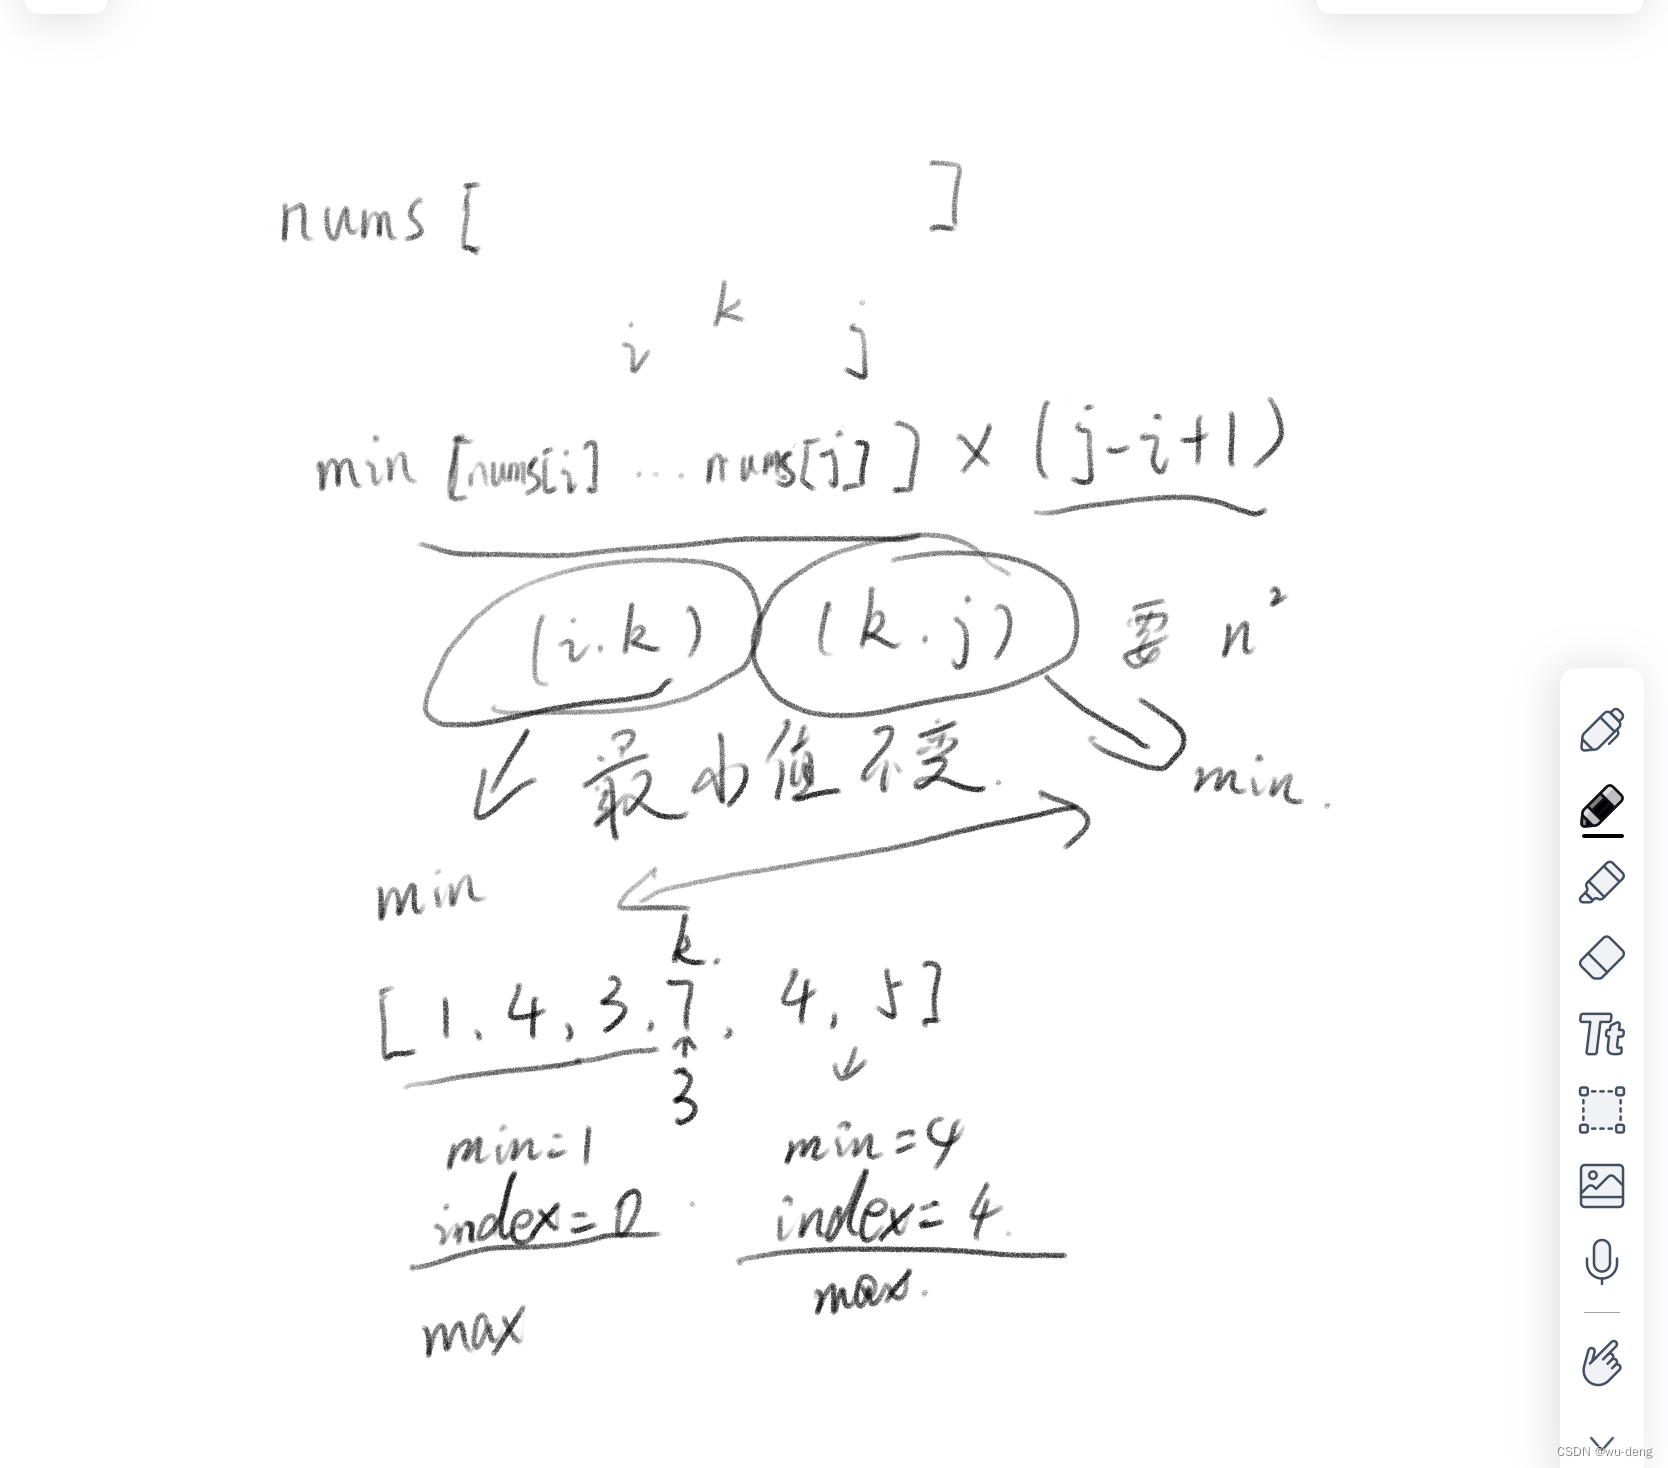 nums [ ]
i k j
min [nums[i] ... nums[j]] × (j-i+1)
(i.k) (k.j) 要 n²
最小值不变.
min.
min
k.
[1, 4, 3, 7, 4, 5]
3
min=1 min=4
index=0 index=4.
max max.
Tt
CSDN @wu-deng